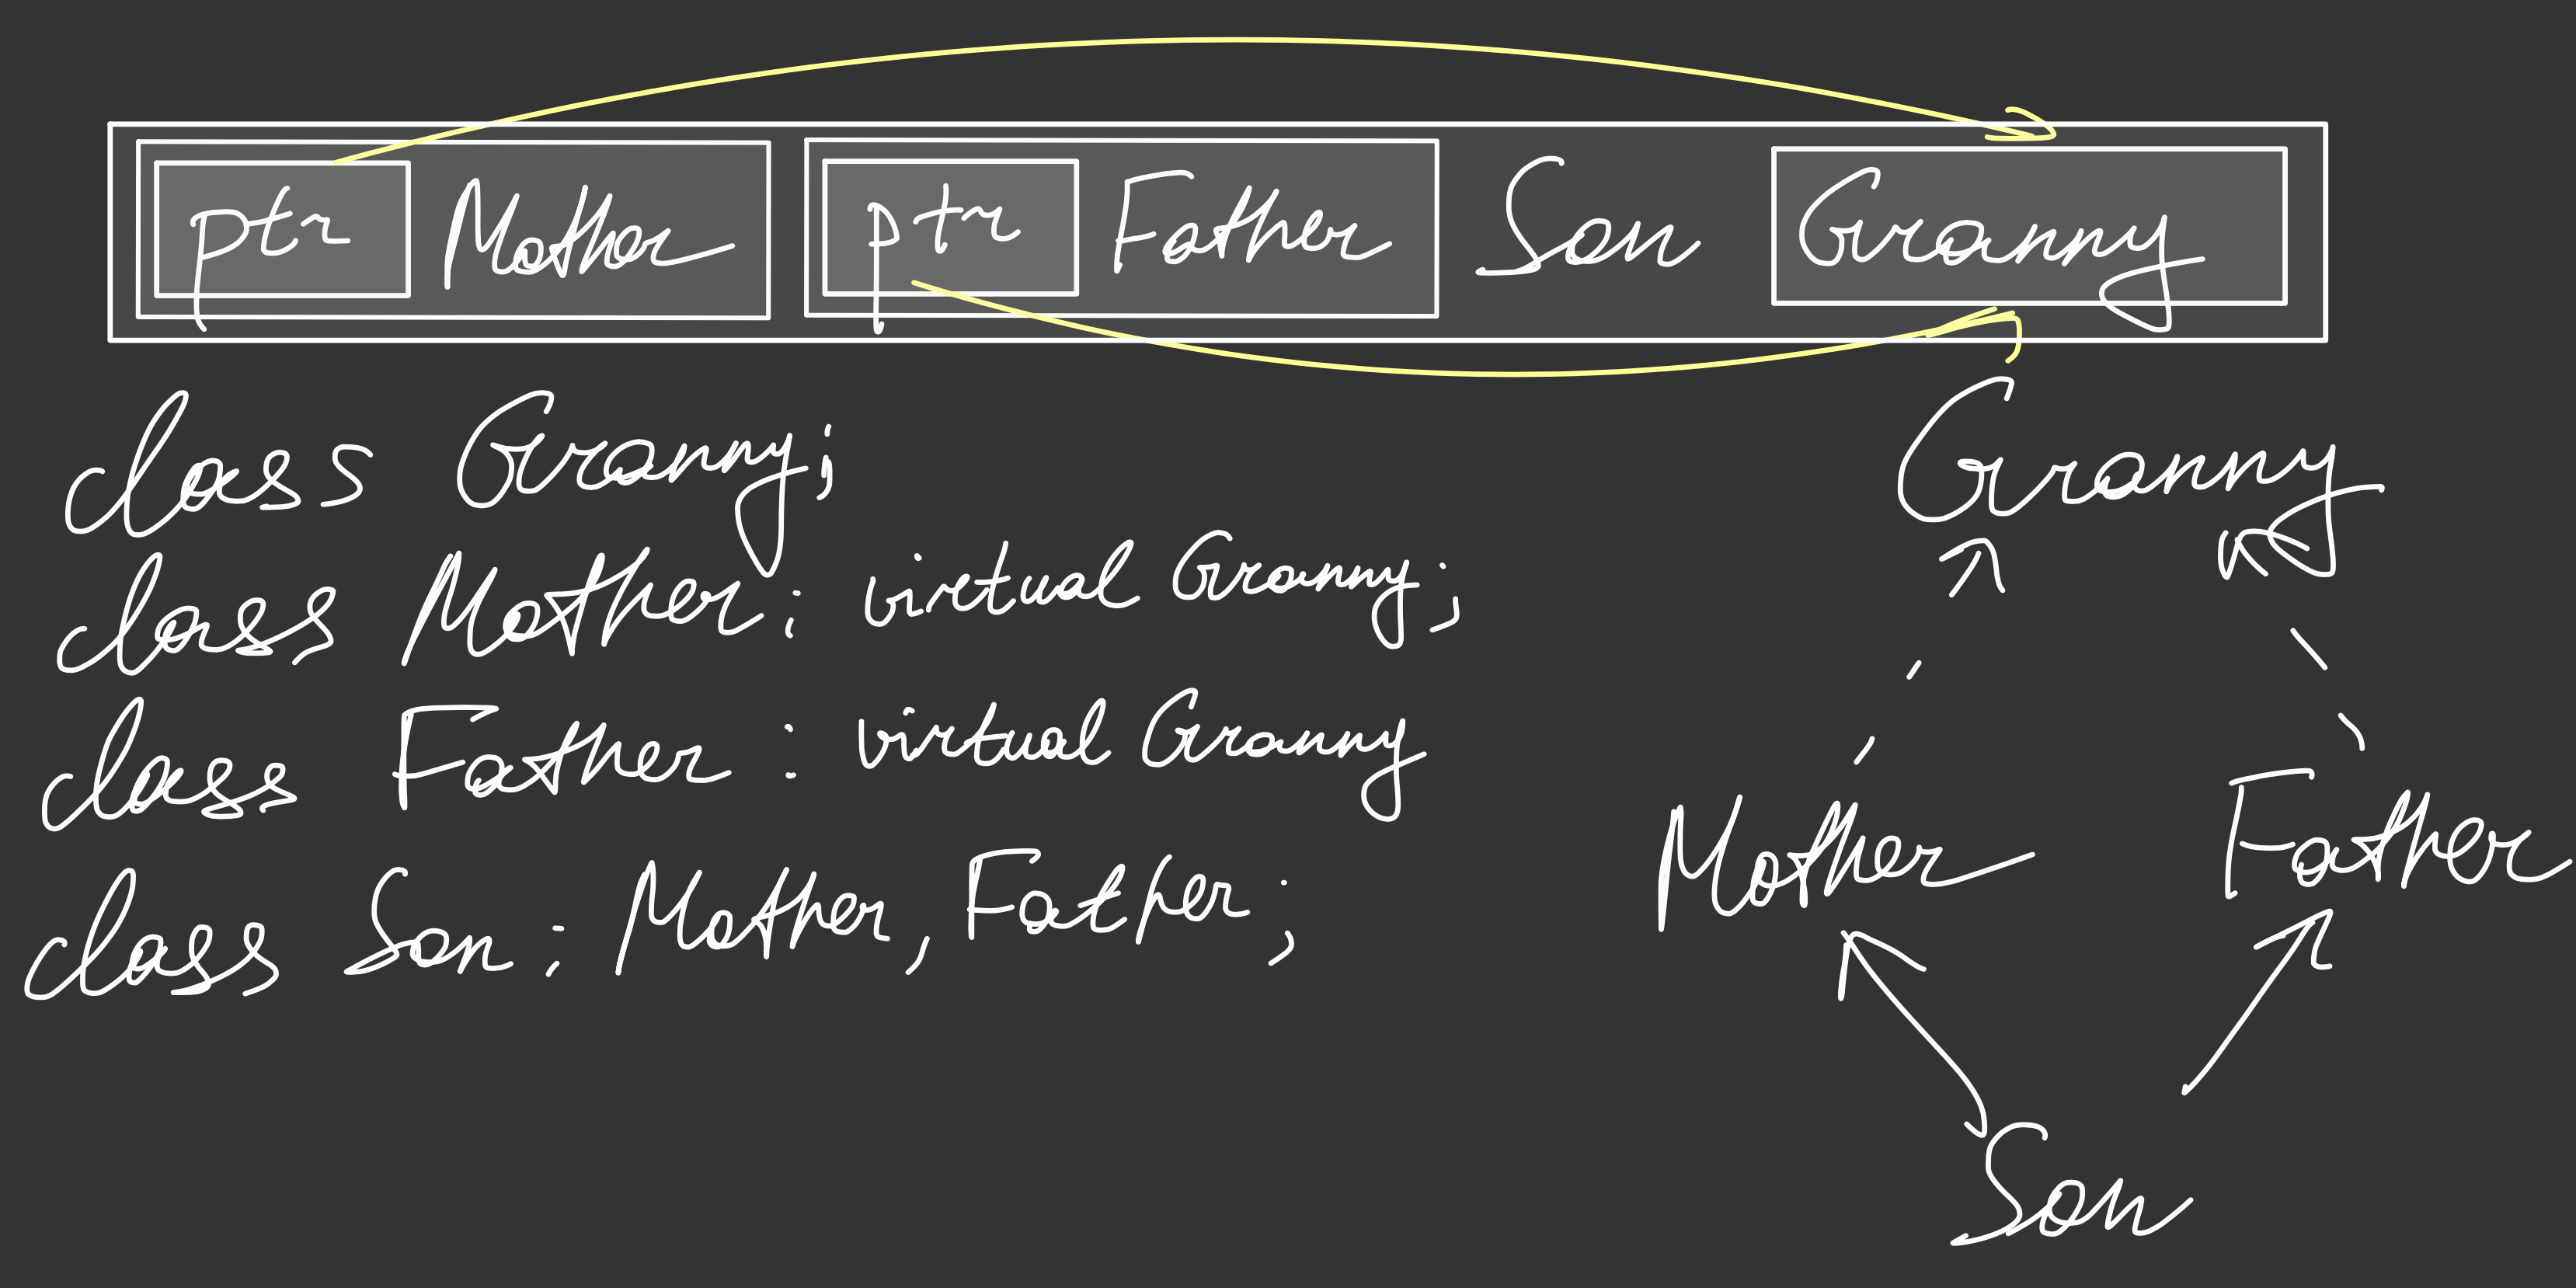 ptr Mother ptr Father Son Granny
class Granny;
class Mother: virtual Granny;
class Father : virtual Granny
class Son : Mother, Father;
Granny
Mother Father
Son